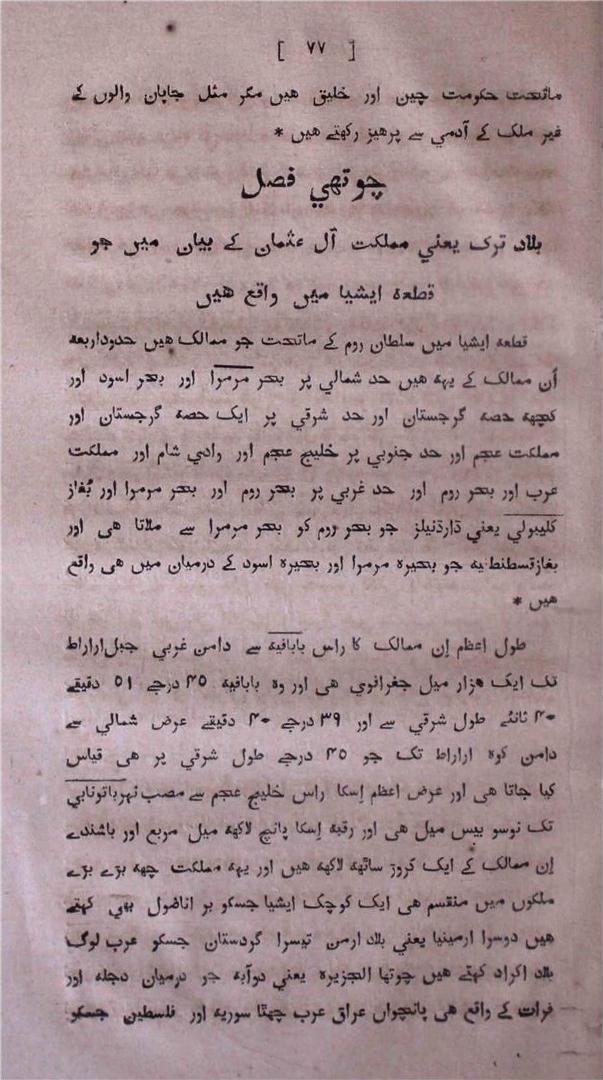 [ ۷۷ ]
ماتحت حکومت چین اور خلیق هیں مگر مثل جاپان والوں کے
غیر ملک کے آدمي سے پرهیز رکهتے هیں *
چوتهي فصل
بلاد ترک یعني مملکت آل عثمان کے بیان میں جو
قطعه ایشیا میں واقع هیں
قطعه ایشیا میں سلطان روم کے ماتحت جو ممالک هیں حدود اربعه
اُن ممالک کے یهه هیں حد شمالي پر بحر مرمرا اور بحر اسود اور
کچهه حصه گرجستان اور حد شرقي پر ایک حصه گرجستان اور
مملکت عجم اور حد جنوبي پر خلیج عجم اور وادي شام اور مملکت
عرب اور بحر روم اور حد غربي پر بحر روم اور بحر مرمرا اور بُغاز
کلیبولي یعني ڈارڈنیلز جو بحر روم کو بحر مرمرا سے ملاتا هی اور
بغاز قسطنطنیه جو بحیره مرمرا اور بحیره اسود کے درمیان میں هی واقع
هیں *
طول اعظم اِن ممالک کا راس بابافیه سے دامن غربي جبل اراراط
تک ایک هزار میل جغرافوي هی اور وه بابافیه ۴۵ درجے ۵۱ دقیقے
۴۰ ثانئے طول شرقي سے اور ۳۹ درجے ۴۰ دقیقے عرض شمالي سے
دامن کوه اراراط تک جو ۴۵ درجے طول شرقي پر هی قیاس
کیا جاتا هی اور عرض اعظم اِسکا راس خلیج عجم سے مصب نهر باتونابي
تک نوسو بیس میل هی اور رقبه اِسکا پانچ لاکهه میل مربع اور باشندے
اِن ممالک کے ایک کروڑ ساٹهه لاکهه هیں اور یهه مملکت چهه بڑے بڑے
ملکوں میں منقسم هی ایک کوچک ایشیا جسکو بر اناضول بهي کهتے
هیں دوسرا ارمینیا یعني بلاد ارمن تیسرا گردستان جسکو عرب لوگ
بلاد اکراد کهتے هیں چوتها الجزیره یعني دوآبه جو درمیان دجله اور
فرات کے واقع هی پانچواں عراق عرب چهٹا سوریه اور فلسطین جسکو